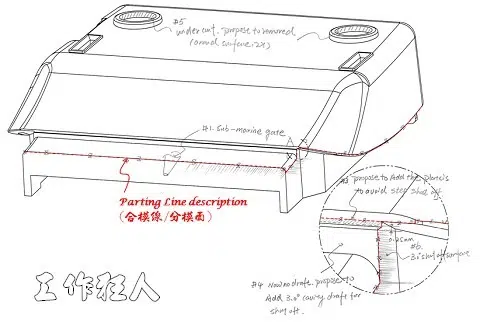 #5
under cut. propose to removed
(around surface: 2x)
#1. Sub-marine gate
Parting Line description
(分模線/分模面)
#3 propose to Add the plane is
to avoid step shut off
0.25mm
#6.
3.0° shut off surface
#4 Now no draft. propose to
Add 3.0° cavity draft for
shut off.
工作狂人